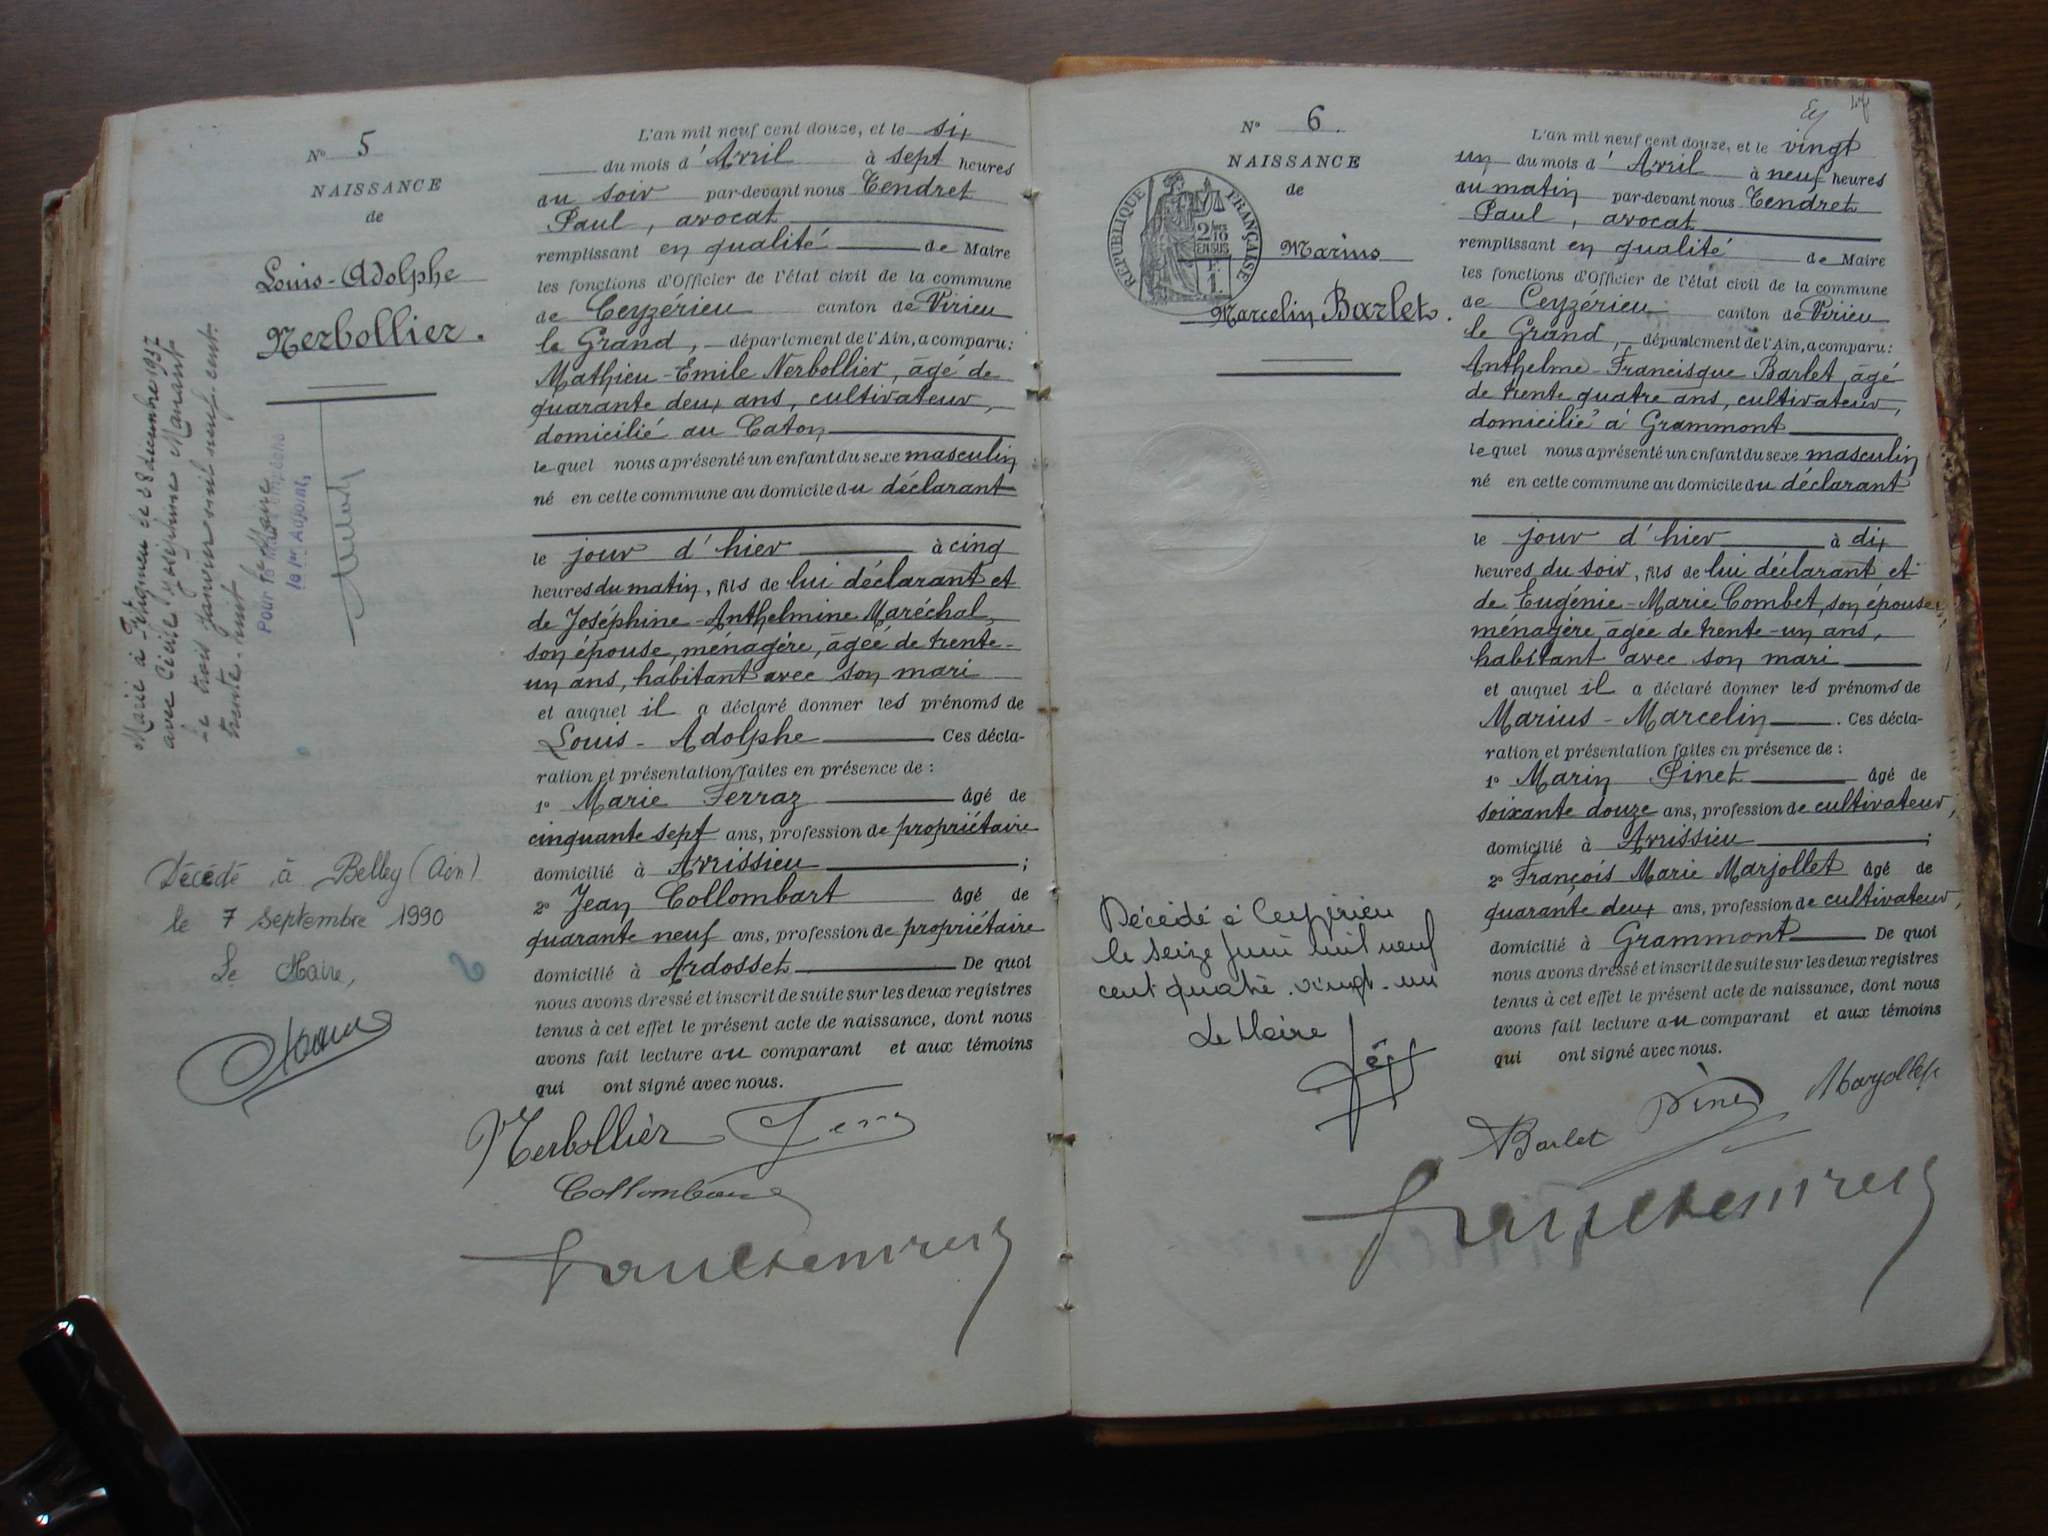 N° 5
NAISSANCE
de
Louis-Adolphe
Nerbollier.
Marié à Artemare le 28 décembre 1937
avec Cécile Joséphine Manant
Le trois janvier mil neuf cent
trente-huit
Pour le Maire
le 1er Adjoint,
Décédé à Belley (Ain)
le 7 septembre 1990
Le Maire,
L'an mil neuf cent douze, et le six
du mois d'Avril à sept heures
du soir par-devant nous Tendret
Paul, avocat
remplissant en qualité de Maire
les fonctions d'Officier de l'état civil de la commune
de Ceyzérieu canton de Virieu
le Grand, département de l'Ain, a comparu:
Mathieu-Emile Nerbollier, âgé de
quarante deux ans, cultivateur,
domicilié au Caton
lequel nous a présenté un enfant du sexe masculin
né en cette commune au domicile du déclarant
le jour d'hier à cinq
heures du matin, fils de lui déclarant et
de Joséphine-Anthelmine Maréchal,
son épouse, ménagère, âgée de trente-
un ans, habitant avec son mari
et auquel il a déclaré donner les prénoms de
Louis-Adolphe Ces décla-
ration et présentation faites en présence de :
1° Marie Ferraz âgé de
cinquante sept ans, profession de propriétaire
domicilié à Avrissieu ;
2° Jean Collombart âgé de
quarante neuf ans, profession de propriétaire
domicilié à Ardosset De quoi
nous avons dressé et inscrit de suite sur les deux registres
tenus à cet effet le présent acte de naissance, dont nous
avons fait lecture au comparant et aux témoins
qui ont signé avec nous.
Nerbollier
N° 6.
NAISSANCE
de
RÉPUBLIQUE FRANÇAISE
2/10
EN SUS
1F
Marius
Marcelin Barlet.
Décédé à Ceyzérieu
le seize juin mil neuf
cent quatre-vingt-un
Le Maire
L'an mil neuf cent douze, et le vingt
un du mois d'Avril à neuf heures
du matin par-devant nous Tendret
Paul, avocat
remplissant en qualité de Maire
les fonctions d'Officier de l'état civil de la commune
de Ceyzérieu canton de Virieu
le Grand, département de l'Ain, a comparu:
Anthelme-Francisque Barlet, âgé
de trente quatre ans, cultivateur,
domicilié à Grammont
lequel nous a présenté un enfant du sexe masculin
né en cette commune au domicile du déclarant
le jour d'hier à dix
heures du soir, fils de lui déclarant et
de Eugénie-Marie Combet, son épouse,
ménagère, âgée de trente-un ans,
habitant avec son mari
et auquel il a déclaré donner les prénoms de
Marius-Marcelin. Ces décla-
ration et présentation faites en présence de :
1° Marin Pinet âgé de
soixante douze ans, profession de cultivateur,
domicilié à Avrissieu ;
2° François Marie Marjollet âgé de
quarante deux ans, profession de cultivateur,
domicilié à Grammont De quoi
nous avons dressé et inscrit de suite sur les deux registres
tenus à cet effet le présent acte de naissance, dont nous
avons fait lecture au comparant et aux témoins
qui ont signé avec nous.
Barlet Pinet Marjollet